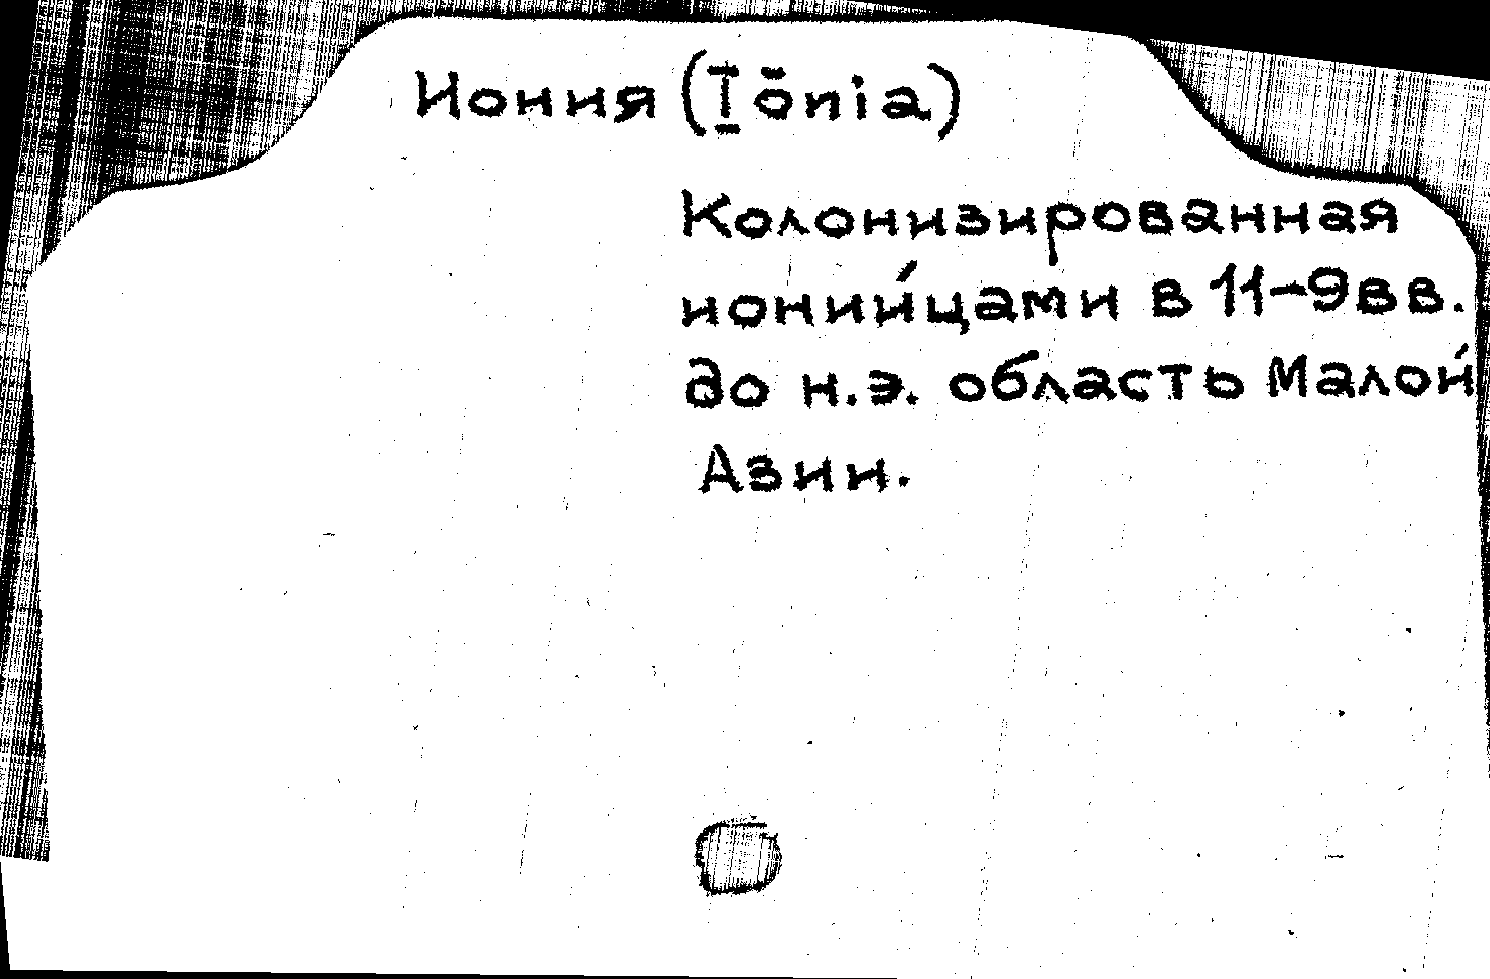 Иония (Iōnia)
Колонизированная
иони́йцами в 11-9 вв.
до н.э. область Малой
Азии.